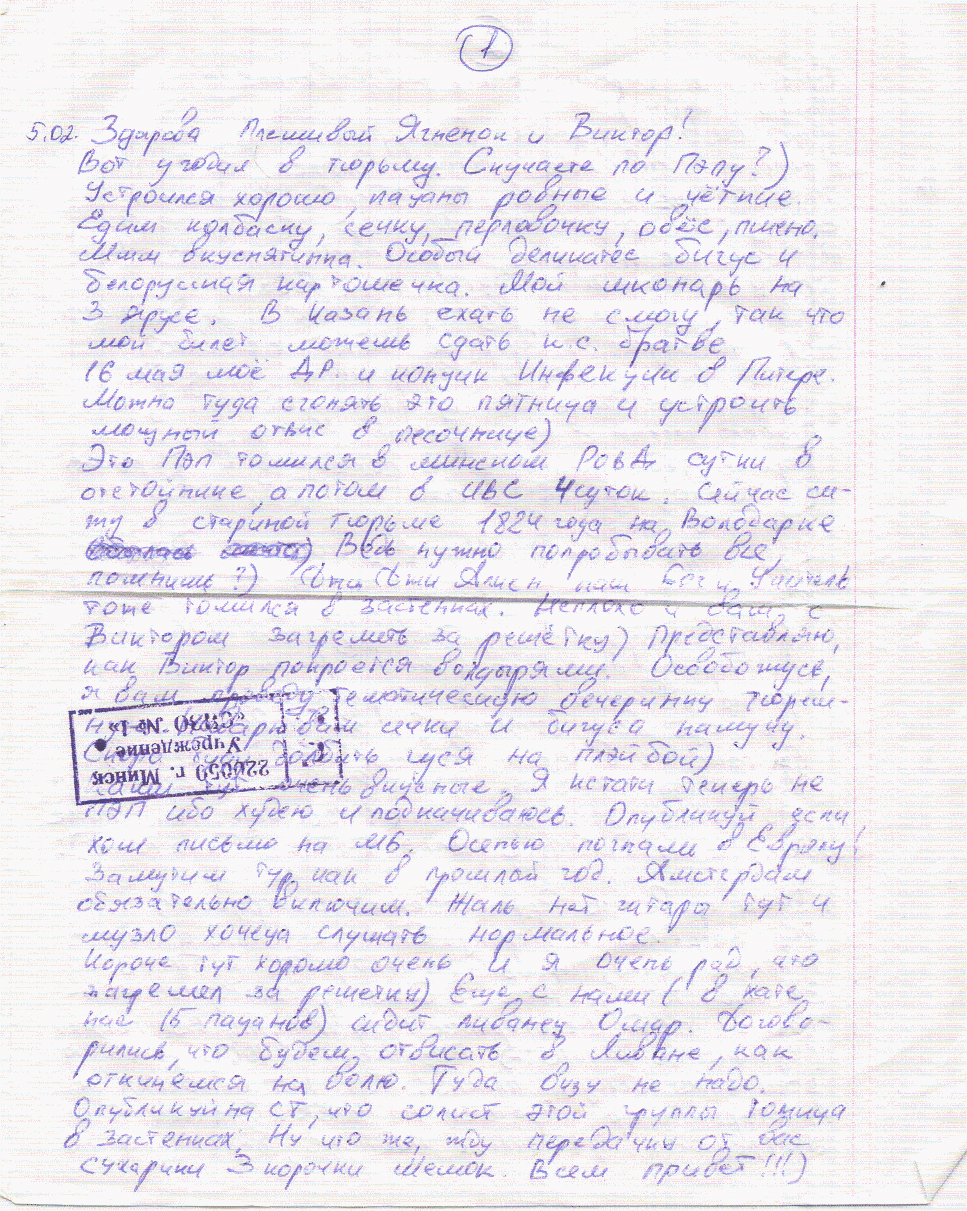 1
5.02. Здарова Плешивый Ягненок и Виктор!
Вот угодил в тюрьму. Скучаете по Пэпу?)
Устроился хорошо, пацаны ровные и чёткие.
Едим колбаску, сечку, перловочку, овёс, пшено.
Ммм вкуснятинпа. Особый деликатес бигус и
белорусская картошечка. Мой шконарь на
3 ярусе. В Казань ехать не смогу, так что
мой билет можешь сдать к.с. братве
16 мая моё ДР. и концик Инфекции в Питере.
Можно туда сгонять это пятница и устроить
мощный отвис в песочнице)
Это Пэп томился в минском РОВД сутки в
отстойнике, а потом в ИВС 4 суток. Сейчас си-
жу в стариной тюрьме 1824 года на Володарке
Ведь нужно попробывать все,
помнишь?) Джи Джи Ялиен наш Бог и Учитель
тоже томился в застенках. Неплохо и вам с
Виктором загреметь за решётку) Представляю,
как Виктор покроется волдырями. Освобожусь,
я вам проведу тематическую вечеринку тюрем-
вам сечки и бигуса намучу.
гуся на плэйбой)
тут очень вкусные. Я кстати теперь не
Пэп ибо худею и подкачиваюсь. Опубликуй если
хош письмо на МБ. Осенью погнали в Европу!
Замутим тур как в прошлый год. Амстердам
обязательно включим. Жаль нет гитары тут и
музло хочеца слушать нормальное.
Короче тут хорошо очень и я очень рад, что
загремел за решетку) Еще с нами (в хате
нас 15 пацанов) сидит ливанец Омар. Догово-
рились, что будем отвисать в Ливане, как
откинемся на волю. Туда визу не надо.
Опубликуй на СТ, что солист этой группы томица
в застенках. Ну что же, жду передачки от вас
сухарики 3 корочки мешок. Всем привет!!!)
220050 г. Минск
Учреждение
«СИЗО № 1»